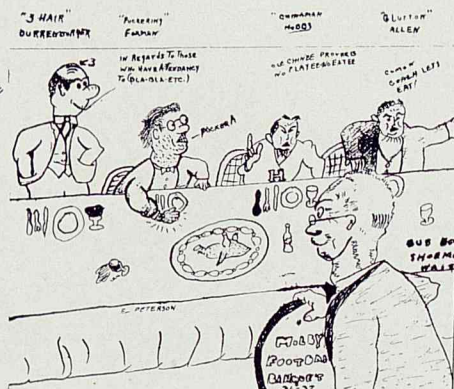 "3 HAIR"
DURRENBURGER
"PUCKERING"
FORMAN
"CHINAMAN"
HOBBS
"GLUTTON"
ALLEN
<3
IN REGARDS TO THOSE
WHO HAVE A TENDANCY
TO (BLA-BLA-ETC.)
PUCKER
OLE CHINESE PROVERB
NO PLATEE BO EATEE
COMON
COACH LETS
EAT!
H
E. PETERSON
BUB
MILBY
FOOTBALL
BANQUET